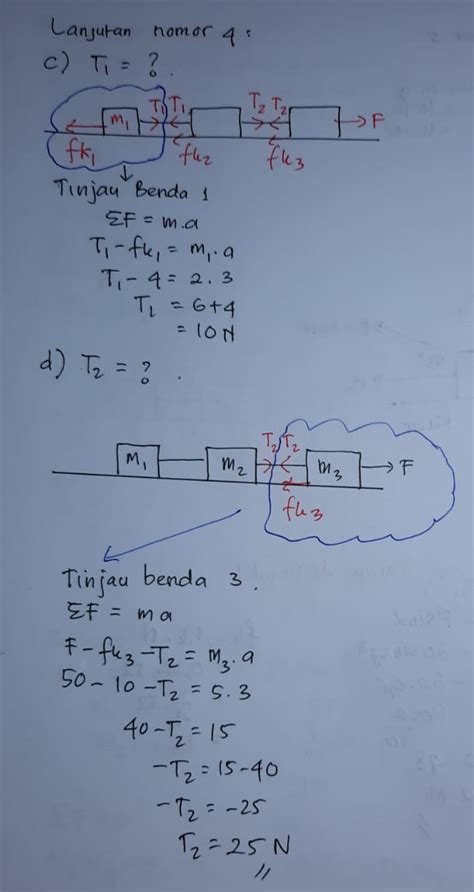 Lanjutan nomor 4:
c) T₁ = ?
m₁ T₁ T₁ T₂ T₂ F
fk₁ fk₂ fk₃
Tinjau Benda 1
ΣF = m.a
T₁ - fk₁ = m₁.a
T₁ - 4 = 2.3
T₁ = 6+4
= 10 N
d) T₂ = ?
m₁ m₂ T₂ T₂ m₃ F
fk₃
Tinjau benda 3.
ΣF = ma
F - fk₃ - T₂ = m₃.a
50 - 10 - T₂ = 5.3
40 - T₂ = 15
-T₂ = 15-40
-T₂ = -25
T₂ = 25 N